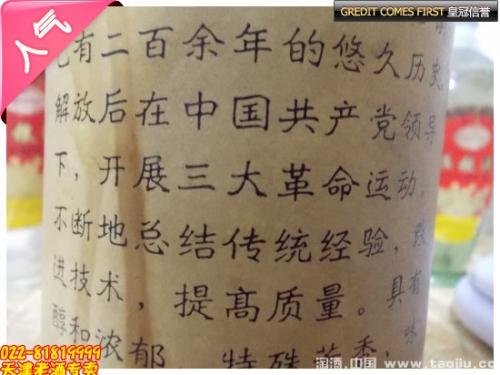 人气
GREDIT COMES FIRST 皇冠信誉
已有二百余年的悠久历史
解放后在中国共产党领导
下，开展三大革命运动，
不断地总结传统经验，改
进技术，提高质量。具有
醇和浓郁、特殊芳香，味
022-81819999
天津老酒专卖
淘酒.中国 www.taojiu.c